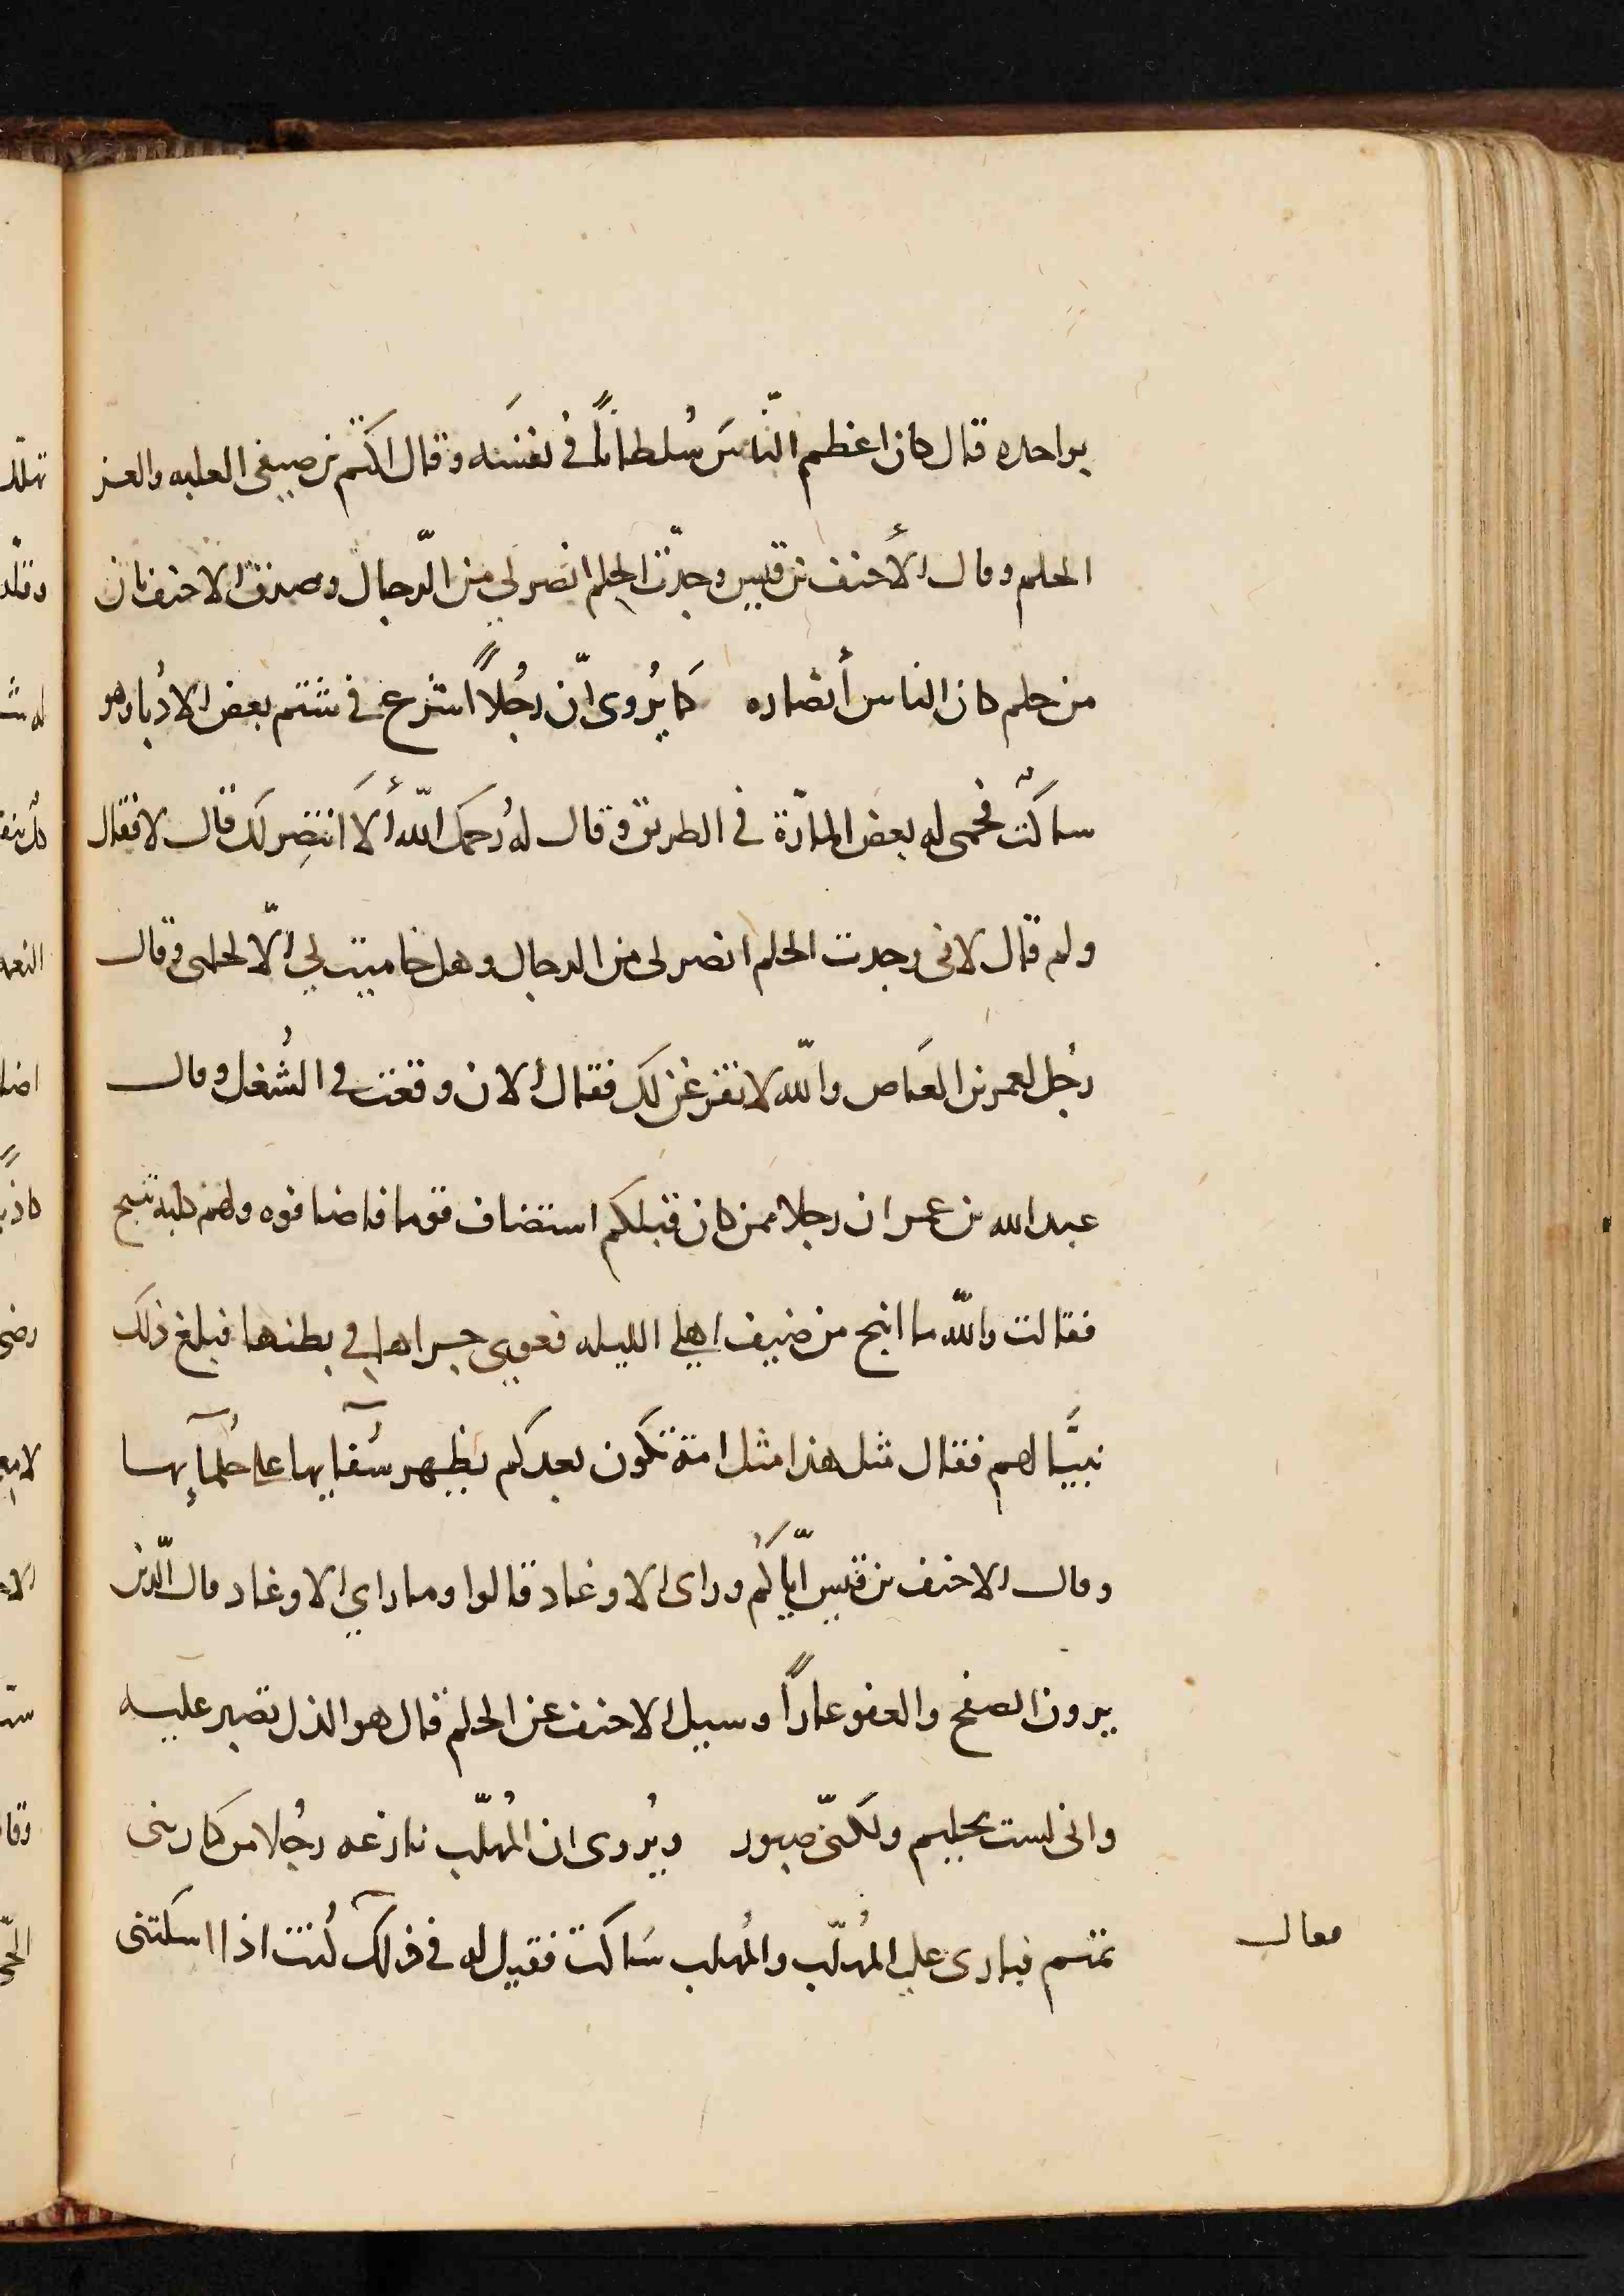 بواحده قال كان اعظم النّاسَ سُلطانًا في نفسَه وقال اكثم بن صيفي الغلبه والعز
الحلم وقال الأحنف بن قيس وجدّت الحلم انصر لي من الرّجال وصدق الاحنف بان
من حلم كان الناس أنصاره كَما يُروى انّ رجُلاً اشرع في شتم بعض الادُبا وهو
ساكت فحمى له بعض المارّة في الطريق وقال لهُ رحمك اللّه أَلاَ انتصِر لك قال لا فقال
ولم قال لاني وجدت الحلم انصر لي من الرجال وهل حاميت لي الّا لحلمى وقال
رجُل لعمر بن العَاص واللّه لاتفرغن لك فقال ألان وقعت في الشُغل وقال
عبد الله بن عمر ان رجلا ممن كان قبلكم استضاف قوما فاضافوه ولهم كلبه تنبح
فقالت واللّه ما انبح من ضيف اهلي الليله فعوى جراها في بطنها فبلغ ذلك
نبيَّا لهم فقال مثل هذا مثل امة تكون بعدكم يظهر سُفايها على حُلمآئها
وقال الاحنف بن قيس ايّاكُم وراى الاوغاد قالوا وما راي الاوغاد قال الّذين
يرون الصفح والعفو عارًا وسيل الاحنف عن الحلم قال هو الذل تصبر عليه
واني لست بحليم ولكنّي صبور ويُروى ان المُهلّب نازعه رجُلا من كاربني
تمتم فبارى على المُهلّب والمُهلب سَاكت فقيل له في ذلك كُنت اذا اسكتني
فقال